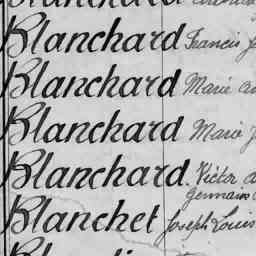 Blanchard Francis
Blanchard Marie
Blanchard Marie
Blanchard Victor
Germains
Blanchet Joseph Louis